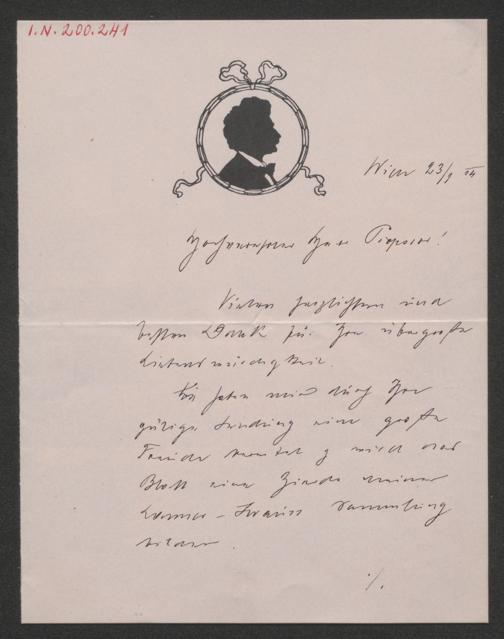 I.N. 200.241
Wien 23/9
Hochverehrter Herr
Vielen herzlichen und
besten Dank für Ihre übergroße
Liebenswürdigkeit.
Sie haben mir durch Ihre
gütige Sendung eine große
Freude bereitet & wird das
Blatt eine Zierde meiner
Lanner-Strauss Sammlung
bilden.
./.